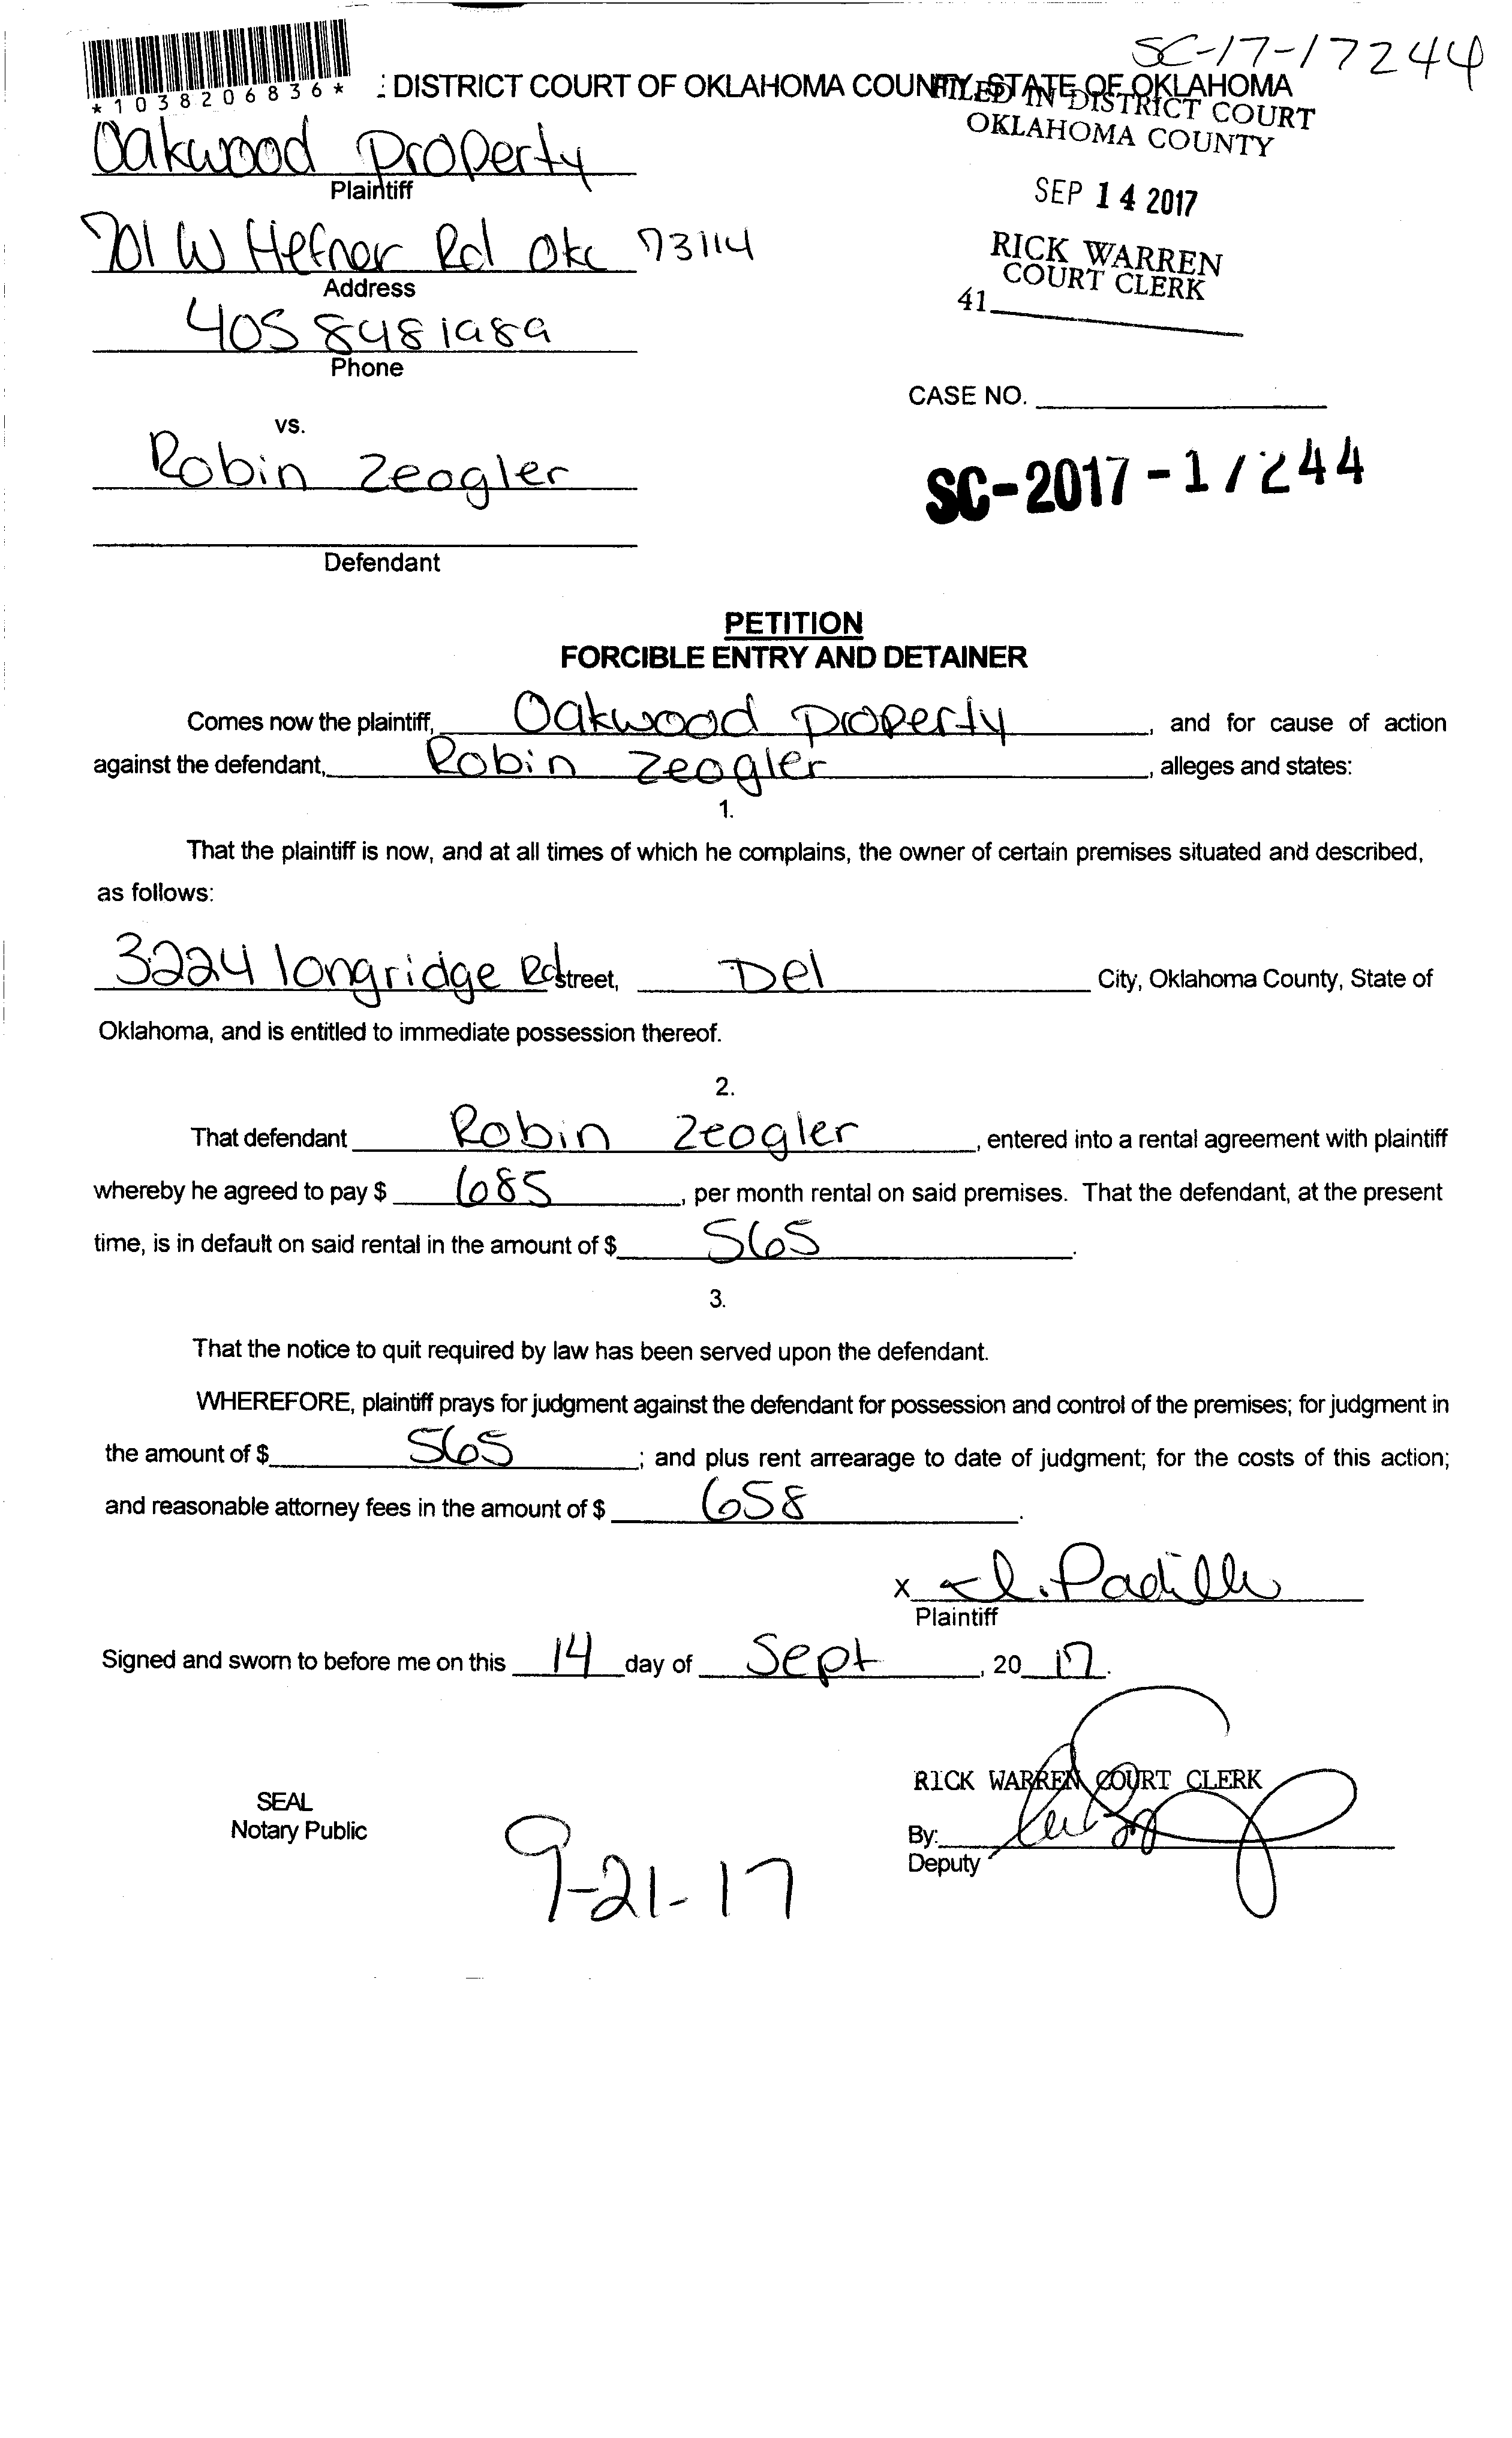 SC-17-17244
*1038206836*
: DISTRICT COURT OF OKLAHOMA COUNTY, STATE OF OKLAHOMA
FILED IN DISTRICT COURT
OKLAHOMA COUNTY
Oakwood Property
Plaintiff
SEP 14 2017
701 W Hefner Rd Okc 73114
Address
RICK WARREN
COURT CLERK
41
405 848 1989
Phone
CASE NO.
vs.
Robin Zeogler
SC-2017-17244
Defendant
PETITION
FORCIBLE ENTRY AND DETAINER
Comes now the plaintiff, Oakwood Property, and for cause of action
against the defendant, Robin Zeogler, alleges and states:
1.
That the plaintiff is now, and at all times of which he complains, the owner of certain premises situated and described,
as follows:
3224 longridge Rd Street, Del City, Oklahoma County, State of
Oklahoma, and is entitled to immediate possession thereof.
2.
That defendant Robin Zeogler, entered into a rental agreement with plaintiff
whereby he agreed to pay $ 685, per month rental on said premises. That the defendant, at the present
time, is in default on said rental in the amount of $ 565.
3.
That the notice to quit required by law has been served upon the defendant.
WHEREFORE, plaintiff prays for judgment against the defendant for possession and control of the premises; for judgment in
the amount of $ 565; and plus rent arrearage to date of judgment; for the costs of this action;
and reasonable attorney fees in the amount of $ 658.
x Padilla
Plaintiff
Signed and sworn to before me on this 14 day of Sept, 20 17.
RICK WARREN COURT CLERK
SEAL
Notary Public
By:
Deputy
9-21-17